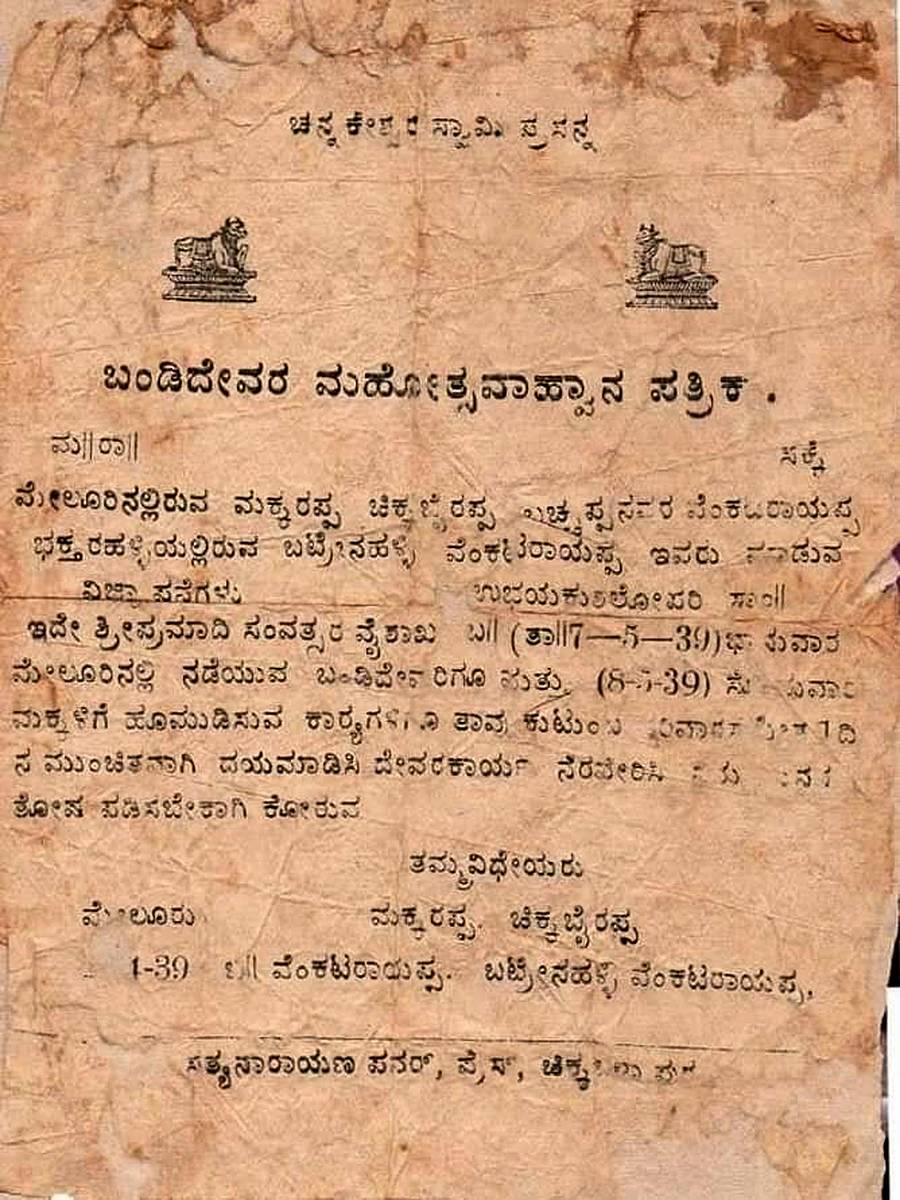 ಚನ್ನಕೇಶ್ವರ ಸ್ವಾಮಿ ಪ್ರಸನ್ನ
ಬಂಡಿದೇವರ ಮಹೋತ್ಸವಾಹ್ವಾನ ಪತ್ರಿಕೆ .
ಮ||ರಾ||
ಸಕ್ಕೆ
ಮೇಲೂರಿನಲ್ಲಿರುವ ಮಕ್ಕರಪ್ಪ ಚಿಕ್ಕಬೈರಪ್ಪ ವೆಂಕಟರಾಯಪ್ಪ
ಭಕ್ತರಹಳ್ಳಿಯಲ್ಲಿರುವ ಬಟ್ರೇನಹಳ್ಳಿ ವೆಂಕಟರಾಯಪ್ಪ ಇವರು ಮಾಡುವ
ವಿಜ್ಞಾಪನೆಗಳು ಉಭಯಕುಶಲೋಪರಿ ಸಾಂ||
ಇದೇ ಶ್ರೀಪ್ರಮಾದಿ ಸಂವತ್ಸರ ವೈಶಾಖ ಬ|| (ತಾ||7—5—39)
ಮೇಲೂರಿನಲ್ಲಿ ನಡೆಯುವ ಬಂಡಿದೇವರಿಗೂ ಮತ್ತು (8-5-39)
ಮಕ್ಕಳಿಗೆ ಹೂಮುಡಿಸುವ ಕಾರ್‍ಯಗಳಿಗೂ ತಾವು ಕುಟುಂಬ
ನ ಮುಂಚಿತವಾಗಿ ದಯಮಾಡಿಸಿ ದೇವರಕಾರ್ಯ ನೆರವೇರಿಸಿ
ತೋಷ ಪಡಿಸಬೇಕಾಗಿ ಕೋರುವ
ತಮ್ಮವಿಧೇಯರು
ಮೇಲೂರು ಮಕ್ಕರಪ್ಪ. ಚಿಕ್ಕಬೈರಪ್ಪ
4-39 ವೆಂಕಟರಾಯಪ್ಪ. ಬಟ್ರೇನಹಳ್ಳಿ ವೆಂಕಟರಾಯಪ್ಪ,
ಸತ್ಯನಾರಾಯಣ ಪವರ್, ಪ್ರೆಸ್,